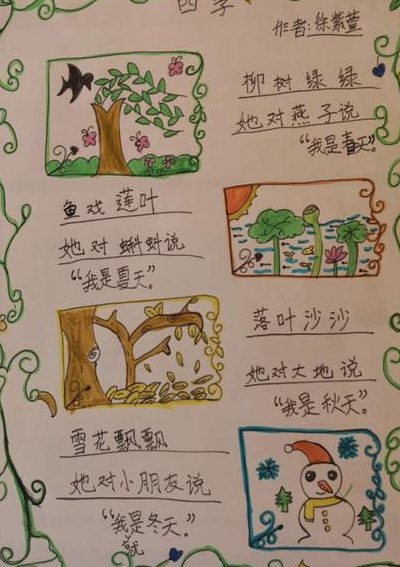 四季
作者:徐紫萱
柳树绿绿
她对燕子说
“我是春天”。
鱼戏莲叶
她对蝌蚪说
“我是夏天”。
落叶沙沙
她对大地说
“我是秋天”。
雪花飘飘
她对小朋友说
“我是冬天”。
就